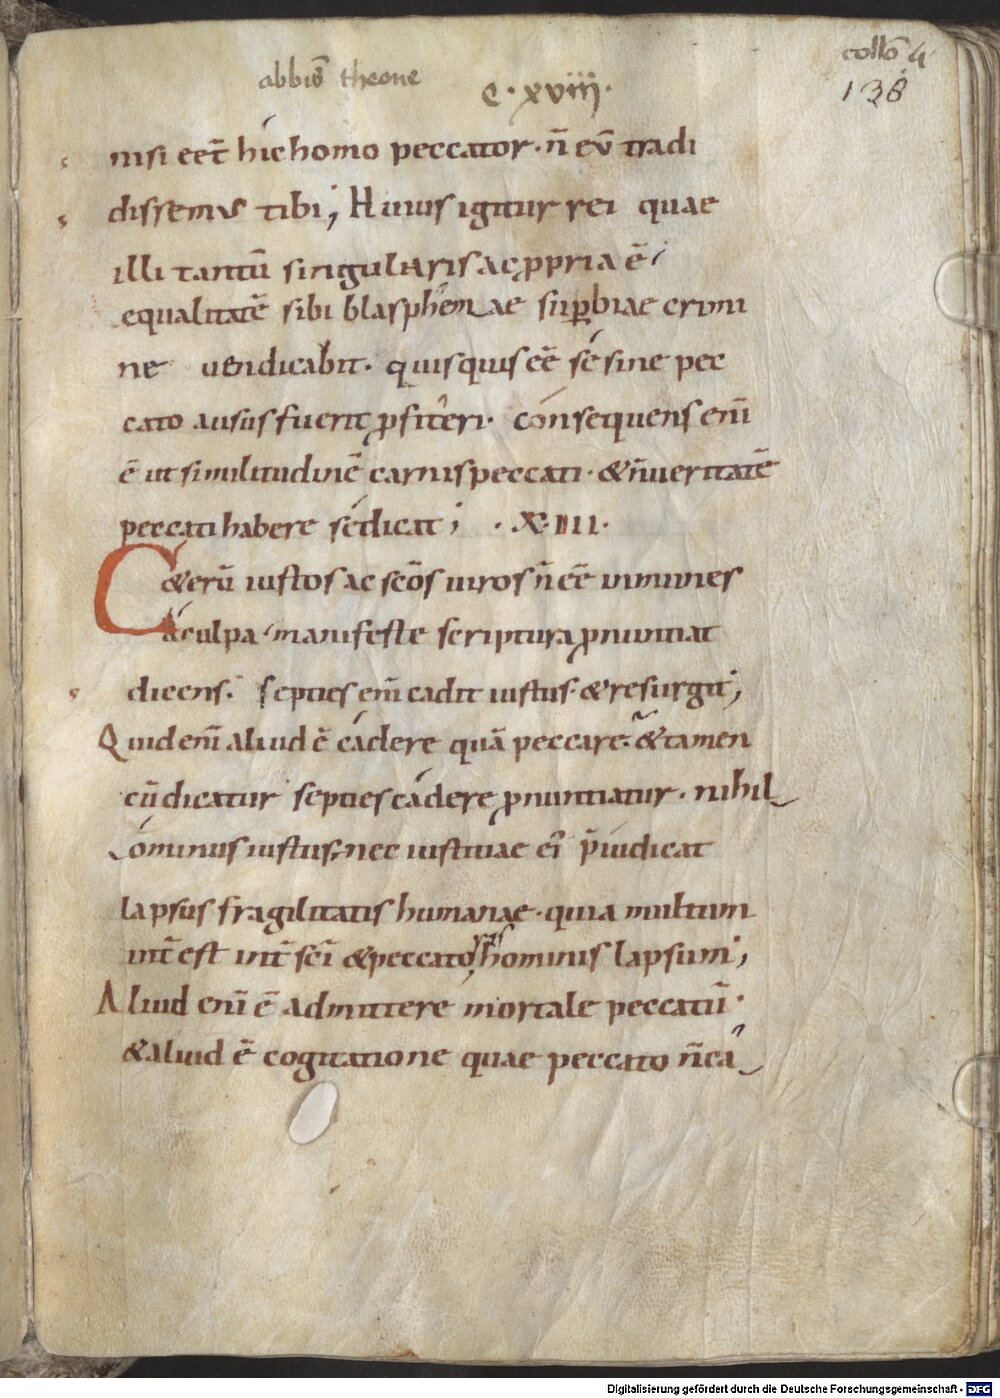 collõ 4
abbis theone
C·xviii·
138
nisi eet̄ hic homo peccator·n̄ eū tradi
dissemus tibi; Huius igitur rei quae
illi tantū singularis ac ꝓpria ē·
equalitatē sibi blasphemae suꝑbiae crimi
ne uendicabit· quisquis eē se sine pec
cato ausus fuerit ꝓfiteri· consequens eni̅
ē ut similitudinē carnis peccati· & n̄ ueritatē
peccati habere se dicat; ·X·IIII·
C&erū iustos ac sc̄os uiros n̄ eē inmunes
a culpa manifeste scriptura ꝓnuntiat
dicens· septies eni̅ cadit iustus·& resurgit;
Quid eni̅ aliud ē cadere quā peccare·& tamen
cū dicatur septies cadere ꝓnuntiatur· nihil
ominus iustus· nec iustitiae ei' p̄iudicat
lapsus fragilitatis humanae· quia multum
int̄est int̄ sc̄i & peccatoris hominis lapsum;
Aliud eni̅ ē admittere mortale peccatū·
& aliud ē cogitatione quae peccato n̄ ca
Digitalisierung gefördert durch die Deutsche Forschungsgemeinschaft - DFG